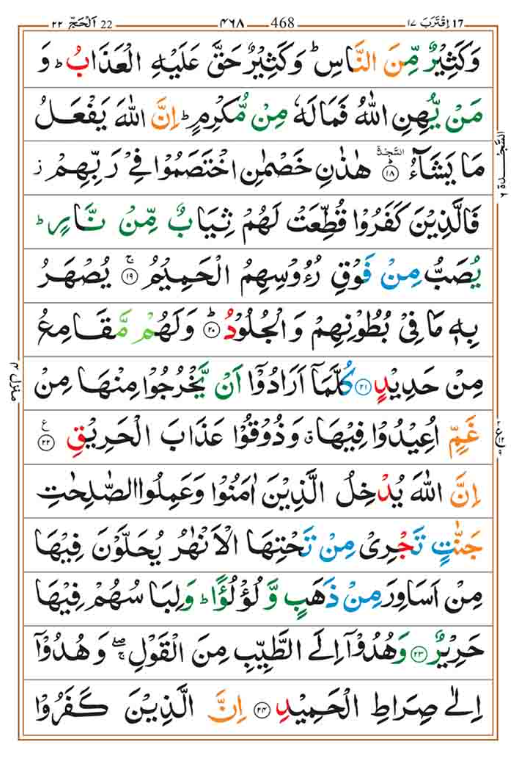 ١٧ اِقْتَرَبَ 17 — 468 — ٤٦٨ — 22 اَلْحَجّ ٢٢
وَكَثِيْرٌ مِّنَ النَّاسِ ؕ وَكَثِيْرٌ حَقَّ عَلَيْهِ الْعَذَابُ ؕ وَ
مَنْ يُّهِنِ اللّٰهُ فَمَالَهٗ مِنْ مُّكْرِمٍ ؕ اِنَّ اللّٰهَ يَفْعَلُ
مَا يَشَآءُ ۩ ﴿۱۸﴾ هٰذٰنِ خَصْمٰنِ اخْتَصَمُوْا فِيْ رَبِّهِمْ ز
فَالَّذِيْنَ كَفَرُوْا قُطِّعَتْ لَهُمْ ثِيَابٌ مِّنْ نَّارٍ ؕ
يُصَبُّ مِنْ فَوْقِ رُءُوْسِهِمُ الْحَمِيْمُ ۚ ﴿۱۹﴾ يُصْهَرُ
بِهٖ مَا فِيْ بُطُوْنِهِمْ وَالْجُلُوْدُ ؕ ﴿۲۰﴾ وَلَهُمْ مَّقَامِعُ
مِنْ حَدِيْدٍ ﴿۲۱﴾ كُلَّمَآ اَرَادُوْٓا اَنْ يَّخْرُجُوْا مِنْهَا مِنْ
غَمٍّ اُعِيْدُوْا فِيْهَا ۗ وَذُوْقُوْا عَذَابَ الْحَرِيْقِ ﴿۲۲﴾ ع
اِنَّ اللّٰهَ يُدْخِلُ الَّذِيْنَ اٰمَنُوْا وَعَمِلُوا الصّٰلِحٰتِ
جَنّٰتٍ تَجْرِيْ مِنْ تَحْتِهَا الْاَنْهٰرُ يُحَلَّوْنَ فِيْهَا
مِنْ اَسَاوِرَ مِنْ ذَهَبٍ وَّلُؤْلُؤًا ؕ وَلِبَاسُهُمْ فِيْهَا
حَرِيْرٌ ﴿۲۳﴾ وَهُدُوْٓا اِلَى الطَّيِّبِ مِنَ الْقَوْلِ ۖ وَهُدُوْٓا
اِلٰى صِرَاطِ الْحَمِيْدِ ﴿۲۴﴾ اِنَّ الَّذِيْنَ كَفَرُوْا
السَّجْدَة ٦
منزل ٤